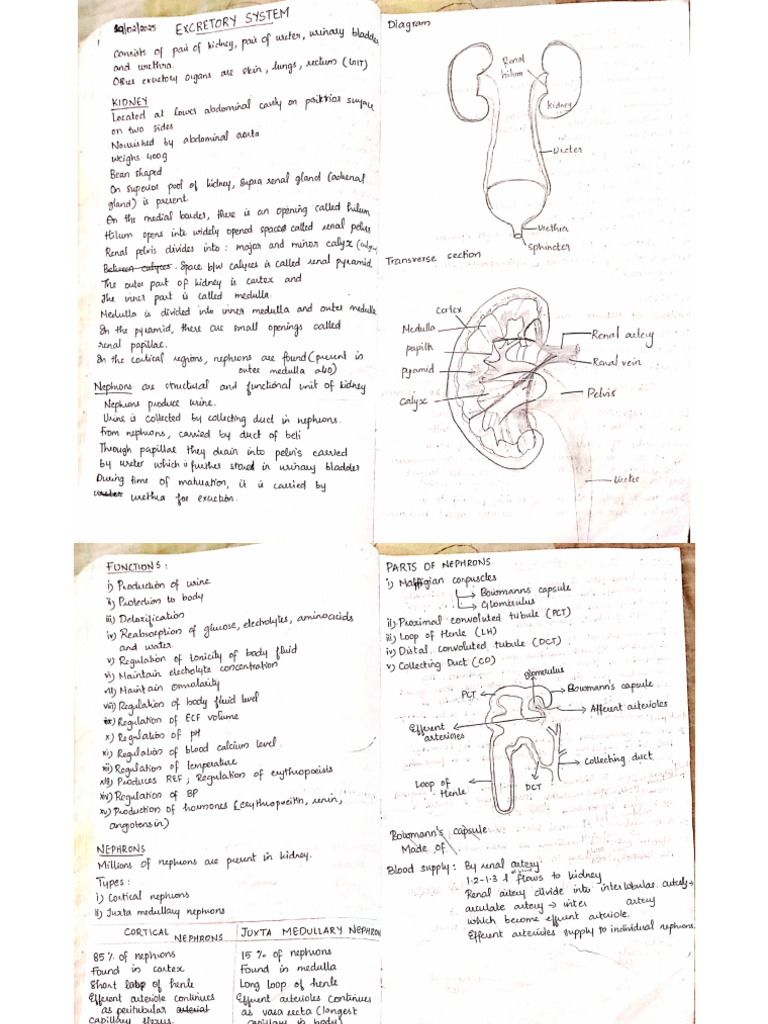 19/02/2025 EXCRETORY SYSTEM
Consists of pair of kidney, pair of ureter, urinary bladder
and urethra.
Other excretory organs are skin, lungs, rectum (GIT)
KIDNEY
Located at lower abdominal cavity on surface
on two sides
Nourished by abdominal aorta
Weighs 400g
Bean shaped
On superior pool of kidney, supra renal gland (adrenal
gland) is present.
On the medial border, there is an opening called hilum
Hilum opens into widely opened space called renal pelvis
Renal pelvis divides into : major and minor calyx
Between calyces. Space b/w calyces is called renal pyramid
The outer part of kidney is cortex and
the inner part is called medulla.
Medulla is divided into inner medulla and outer medulla
In the pyramid, there are small openings called
renal papillae.
In the cortical regions, nephrons are found (present in
outer medulla also)
Nephrons are structural and functional unit of kidney
Nephrons produce urine.
Urine is collected by collecting duct in nephrons.
From nephrons, carried by duct of beli
Through papillae they drain into pelvis carried
by ureter which is further stored in urinary bladder
During time of maturation, it is carried by
ureter urethra for excretion.
Diagram
Renal
hilum
Kidney
Ureter
Urethra
Sphincter
Transverse section
Cortex
Medulla
papilla
pyramid
calyx
Renal artery
Renal vein
Pelvis
Ureter
FUNCTIONS :
i) Production of urine
ii) Protection to body
iii) Detoxification
iv) Reabsorption of glucose, electrolytes, aminoacids
and water
v) Regulation of tonicity of body fluid
vi) Maintain electrolyte concentration
vii) Maintain osmolarity
viii) Regulation of body fluid level
ix) Regulation of ECF volume
x) Regulation of pH
xi) Regulation of blood calcium level.
xii) Regulation of temperature
xiii) Produces REF ; Regulation of erythropoeisis
xiv) Regulation of BP
xv) Production of hormones (erythropoeitin, renin,
angiotensin)
NEPHRONS
Millions of nephrons are present in kidney.
Types :
i) Cortical nephrons
ii) Juxta medullary nephrons
CORTICAL NEPHRONS
JUXTA MEDULLARY NEPHRON
85% of nephrons
15% of nephrons
Found in cortex
Found in medulla
Short loop of henle
Long loop of Henle
Efferent arteriole continues
Efferent arterioles continues
as peritubular arterial
as vasa recta (longest
capillary plexus.
capillary in body)
PARTS OF NEPHRONS
i) Malpigian corpuscles
Bowmanns capsule
Glomerulus
ii) Proximal convoluted tubule (PCT)
iii) Loop of Henle (LH)
iv) Distal convoluted tubule (DCT)
v) Collecting Duct (CD)
glomerulus
PCT
Bowmann's capsule
Afferent arterioles
Efferent
arterioles
Collecting duct
Loop of
Henle
DCT
Bowmann's capsule
Made of
Blood supply : By renal artery
1.2-1.3 l of blood flows to kidney
Renal artery divide into interlobular artery →
arculate artery → inter artery
which become afferent arteriole.
Efferent arterioles supply to individual nephrons.